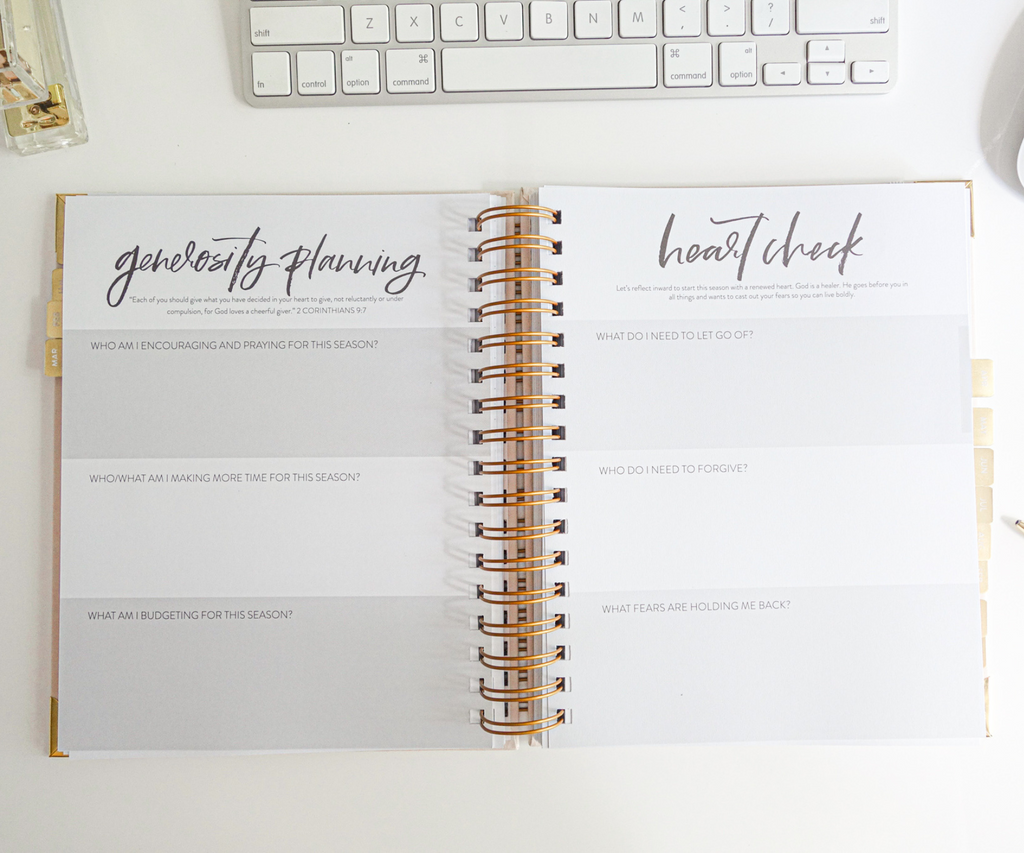 shift Z X C V B N M < , > . ? / shift
fn control alt option ⌘ command ⌘ command alt option
generosity planning
"Each of you should give what you have decided in your heart to give, not reluctantly or under
compulsion, for God loves a cheerful giver." 2 CORINTHIANS 9:7
WHO AM I ENCOURAGING AND PRAYING FOR THIS SEASON?
MAR
WHO/WHAT AM I MAKING MORE TIME FOR THIS SEASON?
WHAT AM I BUDGETING FOR THIS SEASON?
heart check
Let's reflect inward to start this season with a renewed heart. God is a healer. He goes before you in
all things and wants to cast out your fears so you can live boldly.
WHAT DO I NEED TO LET GO OF?
WHO DO I NEED TO FORGIVE?
WHAT FEARS ARE HOLDING ME BACK?